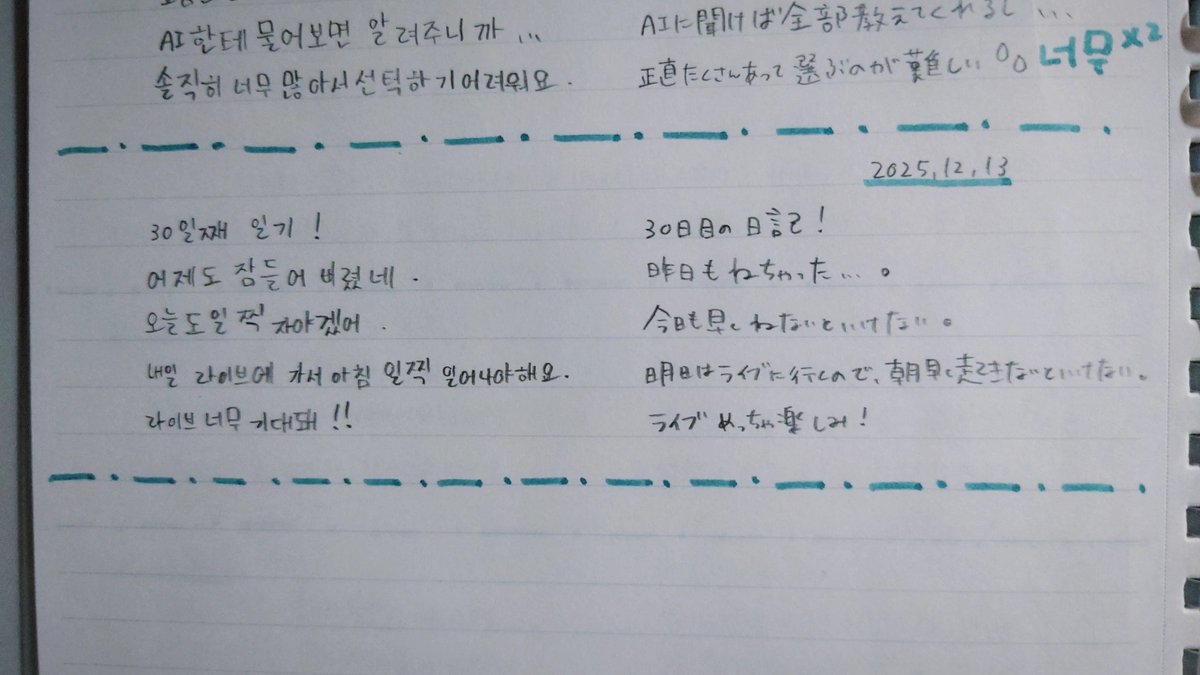 AI한테 물어보면 알려주니까...
AIに聞けば全部教えてくれるし...
솔직히 너무 많아서 선턱하기 어려워요.
正直たくさんあって選ぶのが難しい 너무×2
2025.12.13
30일째 일기!
30日目の日記!
어제도 잠들어 버렸네.
昨日もねちゃった...。
오늘도 일찍 자야겠어.
今日も早くねないといけない。
내일 라이브에 가서 아침 일찍 일어나야해요.
明日はライブに行くので、朝早く起きないといけない。
라이브 너무 기대돼!!
ライブめっちゃ楽しみ!